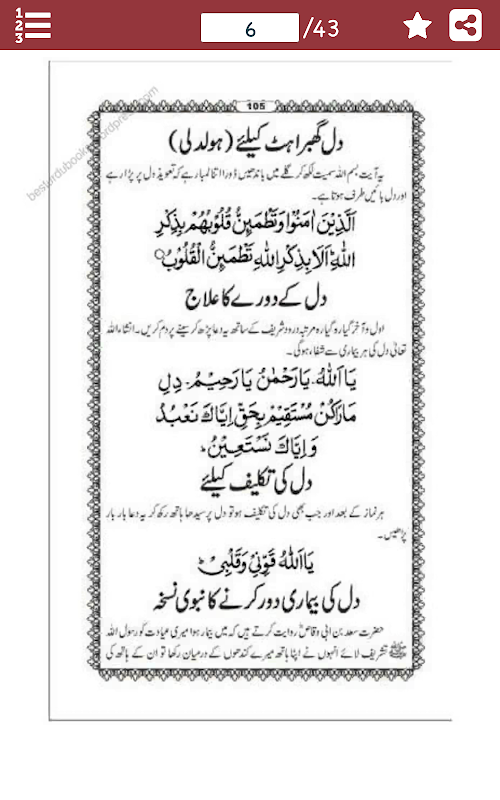 1
2
3
6 /43
105
besturdubooks.wordpress.com
دل گھبراہٹ کیلئے (ہولدلی)
یہ آیت بسم اللہ سمیت لکھ کر گلے میں باندھیں ڈورا اتنا لمبا رہے کہ تعویذ دل پر پڑا رہے
اور دل بائیں طرف ہوتا ہے۔
اَلَّذِيْنَ اٰمَنُوْا وَتَطْمَئِنُّ قُلُوْبُهُمْ بِذِكْرِ
اللّٰهِ اَلَا بِذِكْرِ اللّٰهِ تَطْمَئِنُّ الْقُلُوْبُ
دل کے دورے کا علاج
اول و آخر گیارہ گیارہ مرتبہ درود شریف کے ساتھ یہ دعا پڑھ کر سینے پر دم کریں۔ انشاء اللہ
تعالیٰ دل کی ہر بیماری سے شفاء ہوگی۔
يَا اَللّٰهُ۔ يَا رَحْمٰنُ يَا رَحِيْمُ۔ دِلِ
مَارَاكُنْ مُسْتَقِيْمْ بِحَقِّ اِيَّاكَ نَعْبُدُ
وَاِيَّاكَ نَسْتَعِيْنُ۔
دل کی تکلیف کیلئے
ہر نماز کے بعد اور جب بھی دل کی تکلیف ہو تو دل پر سیدھا ہاتھ رکھ کر یہ دعا بار بار
پڑھیں۔
يَا اَللّٰهُ قَوِّنِيْ وَقَلْبِيْ
دل کی بیماری دور کرنے کا نبوی نسخہ
حضرت سعد بن ابی وقاصؓ روایت کرتے ہیں کہ میں بیمار ہوا میری عیادت کو رسول اللہ
ﷺ تشریف لائے انہوں نے اپنا ہاتھ میرے کندھوں کے درمیان رکھا تو ان کے ہاتھ کی